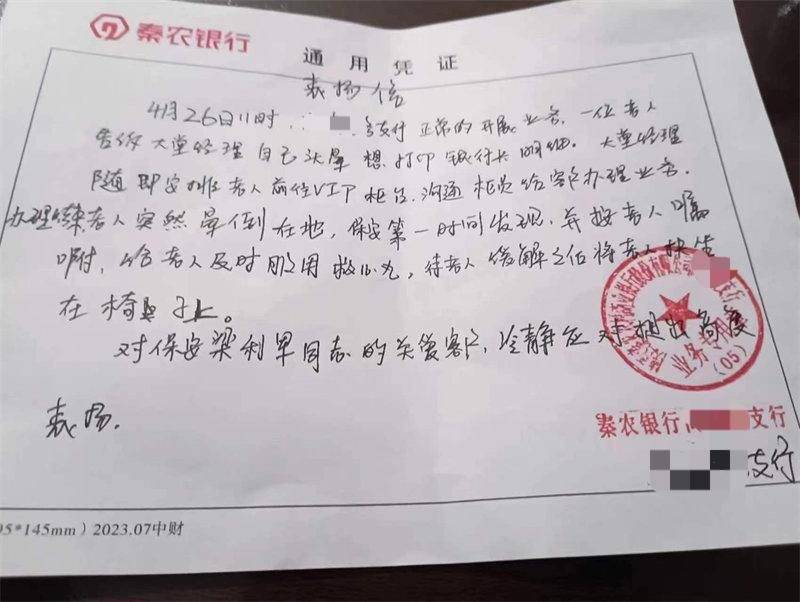 秦农银行
通用凭证
表扬信
4月26日11时,支行正常的开展业务,一位老人
告诉大堂经理自己头晕想打印银行卡明细。大堂经理
随即安排老人前往VIP柜台,沟通柜员给客户办理业务。
办理结束老人突然晕倒在地,保安第一时间发现,并按老人嘱
咐,给老人及时服用救心丸,待老人缓解之后将老人扶坐
在椅子上。
对保安梁利军同志的关爱客户,冷静应对提出高度
表扬.
业务专用章
(05)
秦农银行 支行
支行
95*145mm)2023.07中财